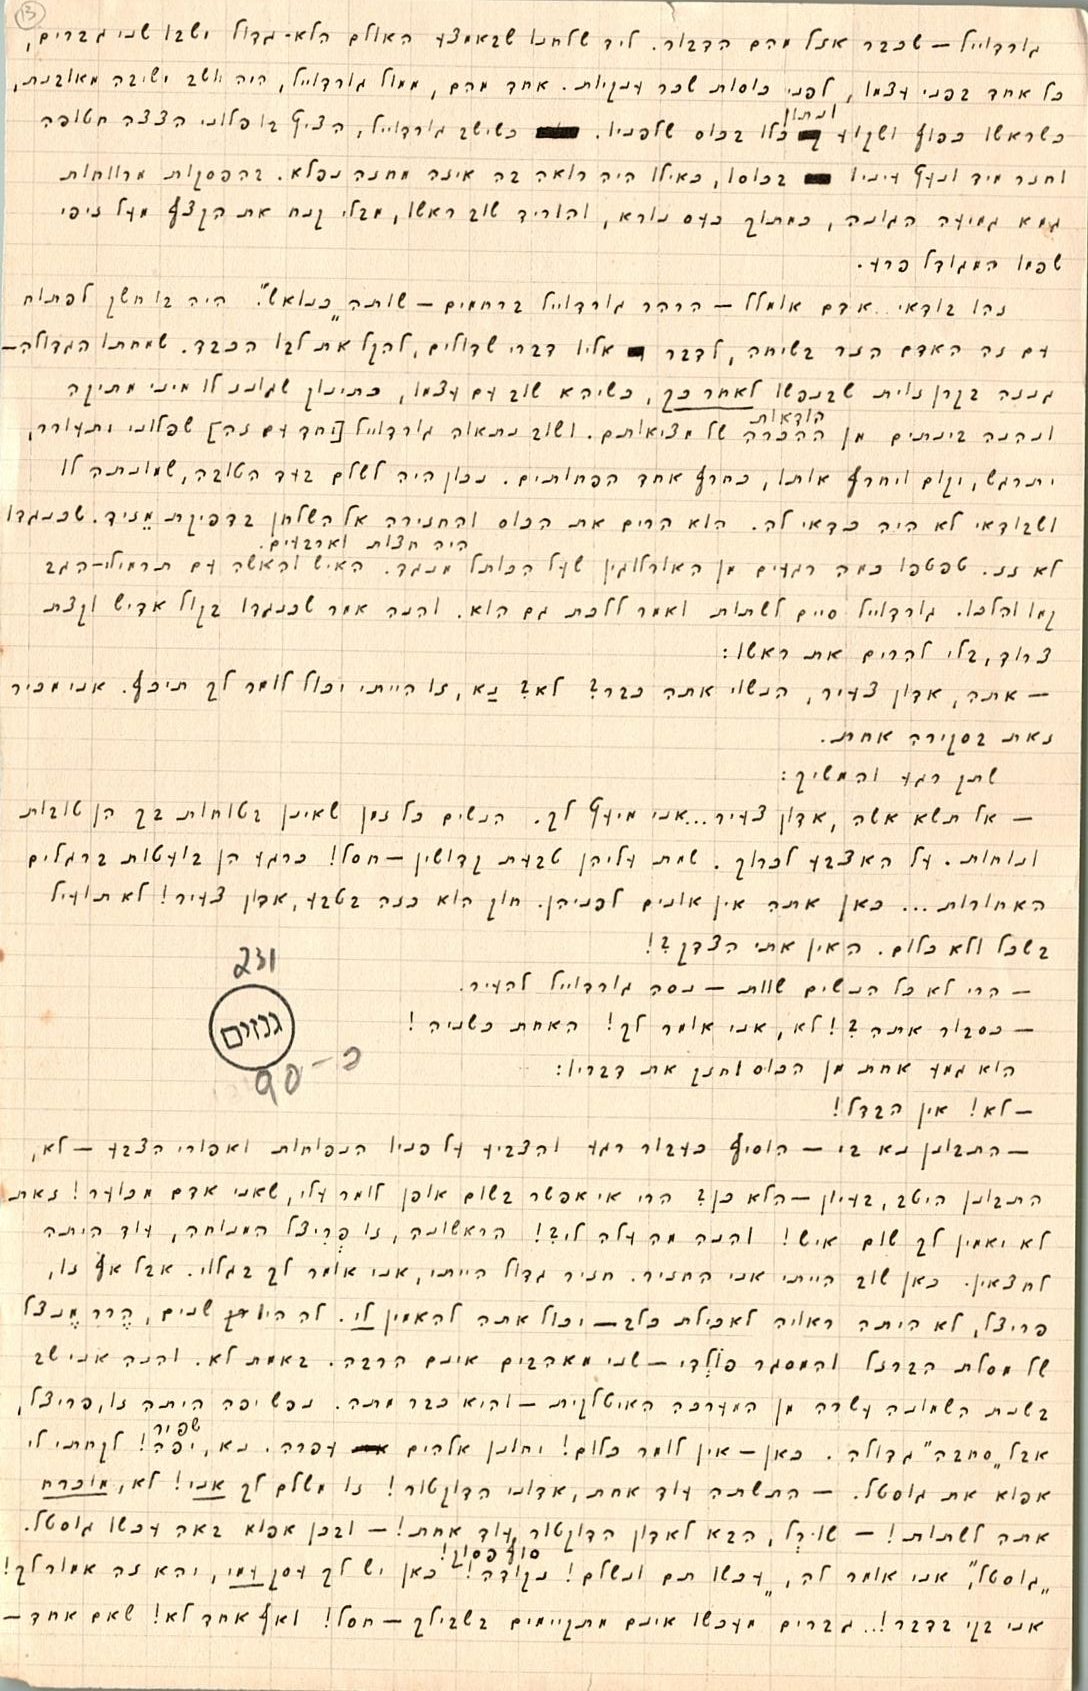 13
גורדווייל – שכבר אזל מהם הדבור. ליד שלחנו שבאמצע האולם הלא-גדול ישבו שני גברים,
כל אחד בפני עצמו, לפני כוסות שכר ענקיות. אחד מהם, ממול גורדווייל, היה יושב ישיבה מאובנת,
ונתון
כשראשו כפוף ושקוע כלו בכוס שלפניו. כשישב גורדווייל, הציץ בו פלוני הצצה חטופה
וחזר מיד ונעץ עיניו בכוסו, כאילו היה רואה בה איזה מחזה נפלא. בהפסקות מרווחות
גמא גמיעה הגונה, כמתוך כעס נורא, והוריד שוב ראשו, מבלי קנח את הקצף מעל זיפי
שפמו המגודל פרע.
זהו בודאי אדם אומלל – הרהר גורדווייל ברחמים – שותה „כנואש”. היה בו חשק לפתוח
עם זה האדם הזר בשיחה, לדבר אליו דברי שדולים, להקל את לבו הכבד. שמחתו הגדולה–
גנזה בקרן זוית שבנפשו לאחר כך, כשיהא שוב עם עצמו, כתינוק שגונז לו מיני מתיקה
הודאות
ונהנה בינתים מן ההכרה של מציאותם. ושוב נתאוה גורדווייל [יחד עם זה] שפלוני יתעורר,
יתרגש, יקום ויחרף אותו, כחרף אחד הפחותים. נכון היה לשלם בעד הטובה, שמונתה לו
ושבודאי לא היה כדאי לה. הוא הרים את הכוס והחזירה אל השלחן בדפיקת מזיד. שכנגדו
היה חצות וארבעים.
לא זז. טפטפו כמה רגעים מן האורלוגין שעל הכותל מנגד. האיש והאשה עם תרמילי-הגב
קמו והלכו. גורדווייל סיים לשתות ואמר ללכת גם הוא. והנה אמר שכנגדו בקול אדיש וקצת
צרוד, בלי להרים את ראשו:
– אתה, אדון צעיר, הנשוי אתה כבר? לא? נָא, זו הייתי יכול לומר לך תיכף. אני מכיר
זאת בסקירה אחת.
שתק רגע והמשיך:
– אל תשא אשה, אדון צעיר... אני מיעץ לך. הנשים כל זמן שאינן בטוחות בך הן טובות
ונוחות. על האצבע לכרוך. שמת עליהן טבעת קדושין – חסל! כרגע הן בועטות ברגלים
האחורות... כאן אתה אין אונים לפניהן. חוק הוא כזה בטבע, אדון צעיר! לא תועיל
בשכל ולא כלום. האין אתי הצדק?!
– הרי לא כל הנשים שוות – נסה גורדווייל להעיר.
– כסבור אתה?! לא, אני אומר לך! האחת כשניה!
הוא גמע אחת מן הכוס וחזק את דבריו:
– לא! אין הבדל!
231
גנזים
כ-90
– התבונן נא בי – הוסיף כעבור רגע והצביע על פניו הנפוחות ואפורי הצבע – לא,
התבונן היטב, בעיון – הלא כן? הרי אי אפשר בשום אופן לומר עלי, שאני אדם מכוער! זאת
לא יאמין לך שום איש! והנה מה עלה לי?! הראשונה, זו פְרִיצל המנוחה, עוד היתה
לחצאין. כאן שוב הייתי אני החזיר. חזיר גדול הייתי, אני אומר לך בגלוי. אבל אף זו,
פריצל, לא היתה ראויה לאכילת כלב – יכול אתה להאמין לי. לה היו שנים, הֶרר מֶנצל
של מסלת הברזל והמסגר פוֹלְדי – שני מאהבים אינם הרבה. באמת לא. והנה אני שב
בשנת השמונה עשרה מן המערכה האיטלקית – והיא כבר מתה. נפש יפה היתה זו, פריצל,
שפיר
אבל „סחבה” גדולה. כאן – אין לומר כלום! יחונן אלהים עפרה. נא, יפה! לקחתי לי
אפוא את גוסטל. – התשתה עוד אחת, אדוני הדוקטור! זו משלם לך אני! לא, מוכרח
אתה לשתות! – שוֹרְל, הבא לאדון הדוקטור עוד אחת! – ובכן אפוא באה עכשו גוסטל.
סוף פסוק!
„גוסטל”, אני אומר לה, „עכשו תם ונשלם! נקודה! כאן יש לך עסק עמי, יהא זה אמור לך!
אני בקי בדבר!.. גברים מעכשו אינם מתקיימים בשבילך – חסל! ואף אחד לא! שאם אחד –